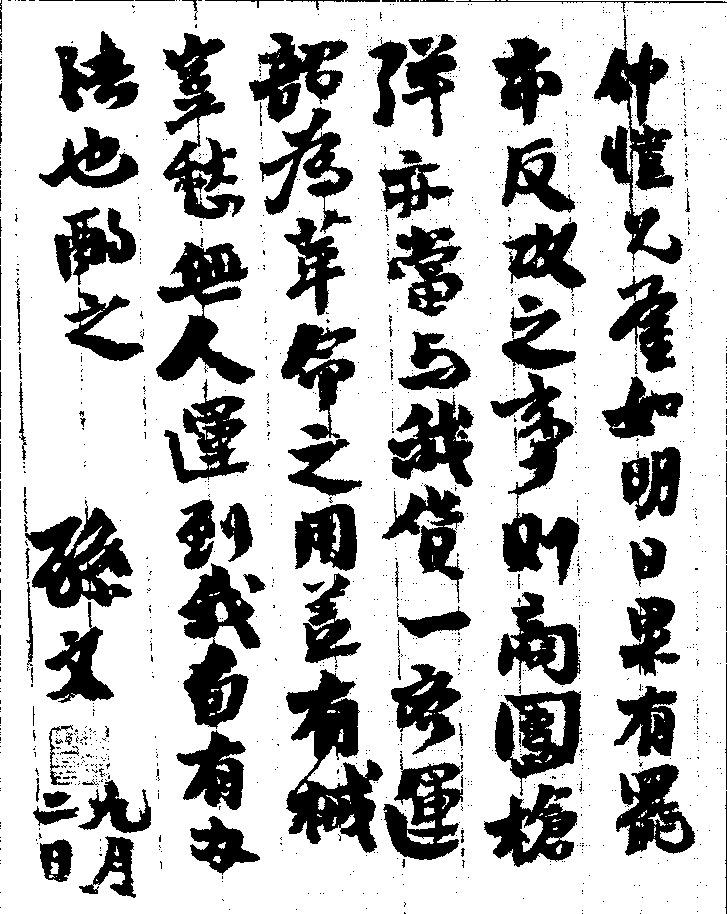 仲愷兄鑒如明日果有罷
市反攻之事則商團槍
彈亦當与我貨一齐運
韶為革命之用盖有械
豈愁無人運到我自有办
法也酌之
孫文
九月
二日